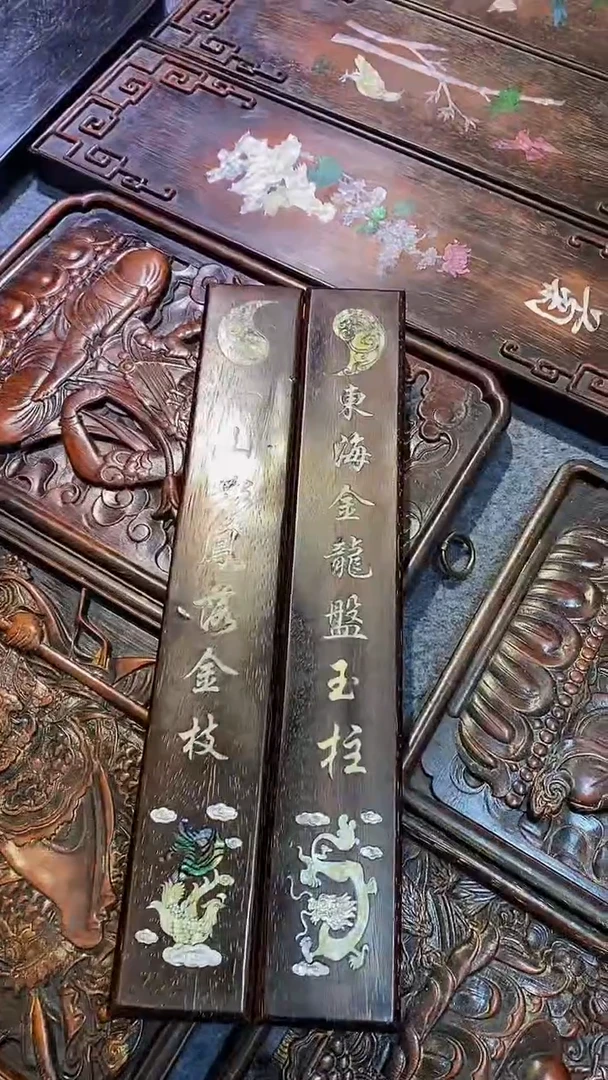 東海金龍盤玉柱
山彩鳳落金枝